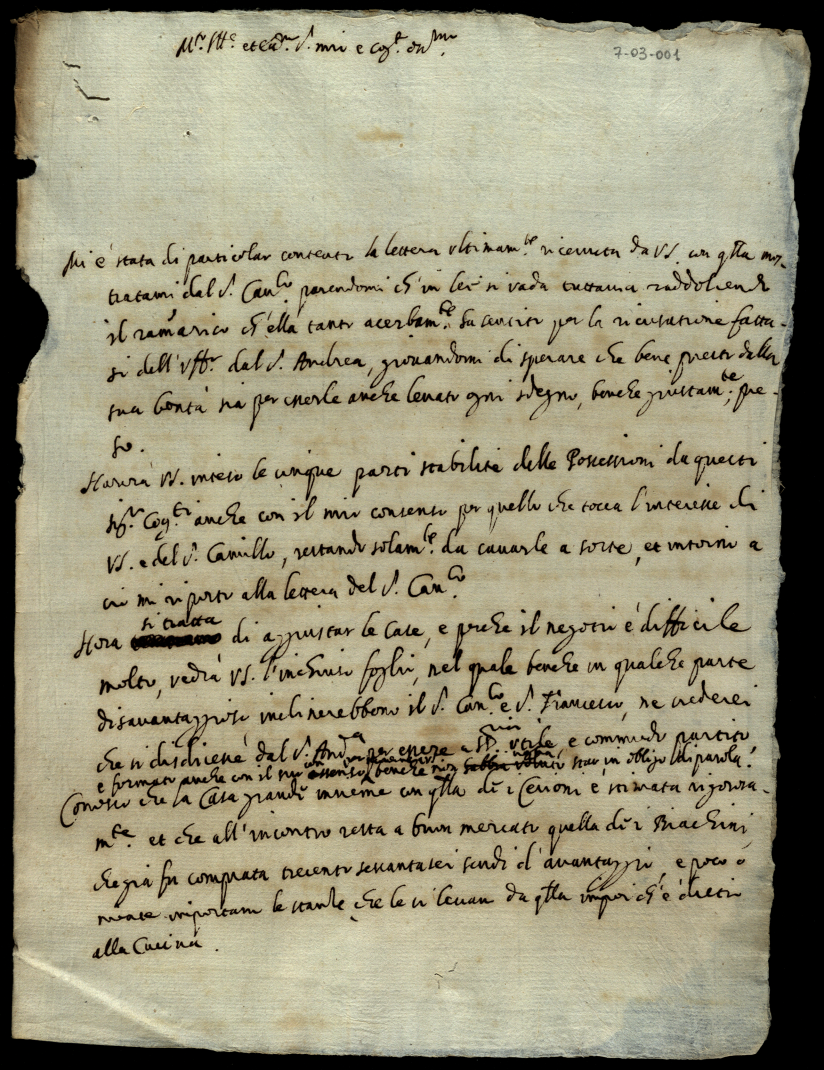 7-03-001
Mto Illre et ecc. S. mio e Cogto
Mi è stata di particolar contento la lettera ultimamte ricevuta da VS. con qlla mos-
tratami dal S. Canco parendomi ch'in lei si vada tuttavia raddolcendo
il ramarico ch'ella tanto acerbamte ha sentito per la ricusatione fatta-
si dell'uffo dal S. Andrea, giovandomi di sperare che bene presto dalla
sua bontà sia per esserle anche levato ogni sdegno, benche giustamte; pre-
so.
Haverà VS. inteso le cinque parti stabilite delle Possessioni da questi
sigri Cogti anche con il mio consenso per quello che tocca l'interesse di
VS. e del S. Camillo, restando solamte da cavarle a sorte, et intorno a
ciò mi riporto alla lettera del S. Canco
si tratta
Hora di aggiustar le Case, e perche il negotio è difficile
molto, vedrà VS. l'inchiuso foglio, nel quale benche in qualche parte
disavantaggioso inclinerebbono il S. Canco e S. Francesco, ne crederei
che si disdicesse dal S. Anda per essere a utile, e commodo partito,
e formato anche con il suo benche non star in obligo di parola.
Conosco che la Casa grande insieme con qlla de i Cerioni è stimata rigorosa-
mte et che all'incontro resta a buon mercato quella de i Biachini,
che già fu comprata trecento sessantasei scudi d'avantaggio, e poco o
niente importano le stanze che le si levan da qlla ch'è dietro
alla Cucina.